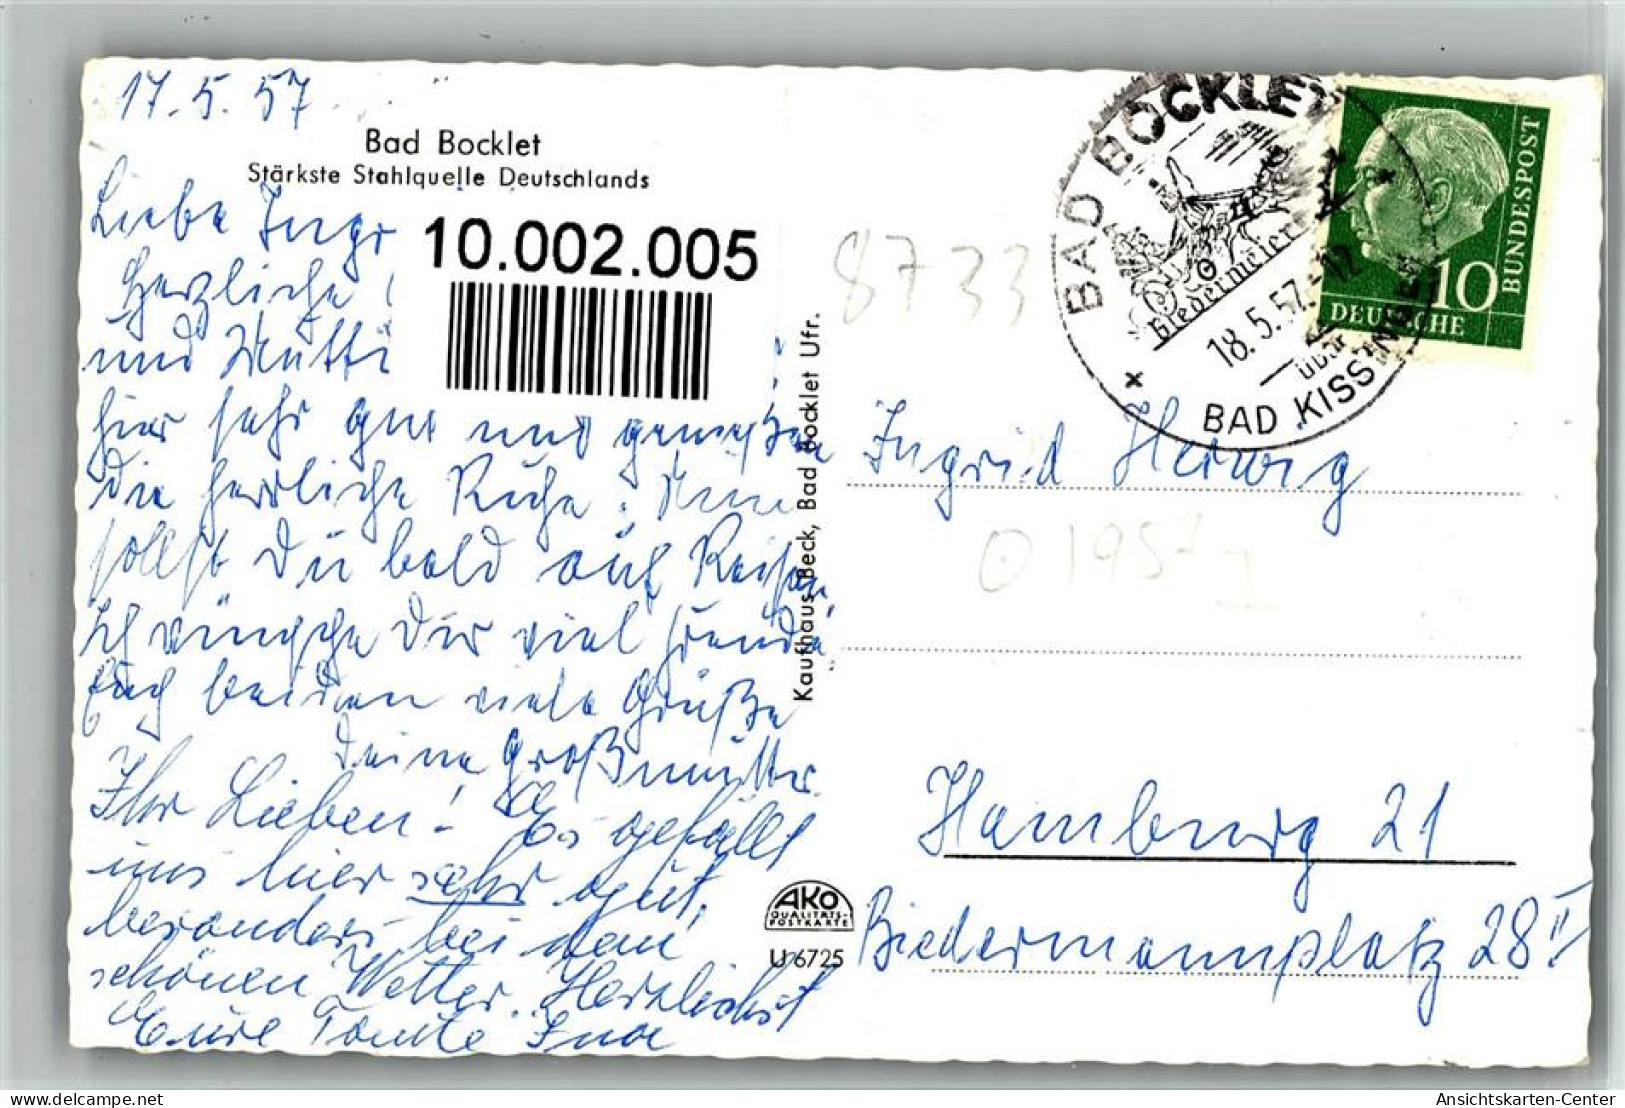 17.5.57
Bad Bocklet
Stärkste Stahlquelle Deutschlands
Liebe Ingr
Herzliche
und Mutti
hier sehr gut und genießen
die herrliche Ruhe. Nun
sollst Du bald auf Reisen.
Ich wünsche Dir viel Freude.
Euch beiden viele Grüße
Deine Großmutter.
Ihr Lieben! Es gefällt
uns hier sehr gut,
besonders bei dem
schönen Wetter. Herzlichst
Eure Tante
10.002.005
Kaufhaus Beck, Bad Bocklet Ufr.
AKO
QUALITÄTS-
POSTKARTE
U 6725
8733
BAD BOCKLET
Biedermeier
18.5.57.-12
über
BAD KISSINGEN
DEUTSCHE
BUNDESPOST
10
Ingrid Herwig
O 1957
Hamburg 21
Biedermannplatz 28 II
delcampe.net
Ansichtskarten-Center